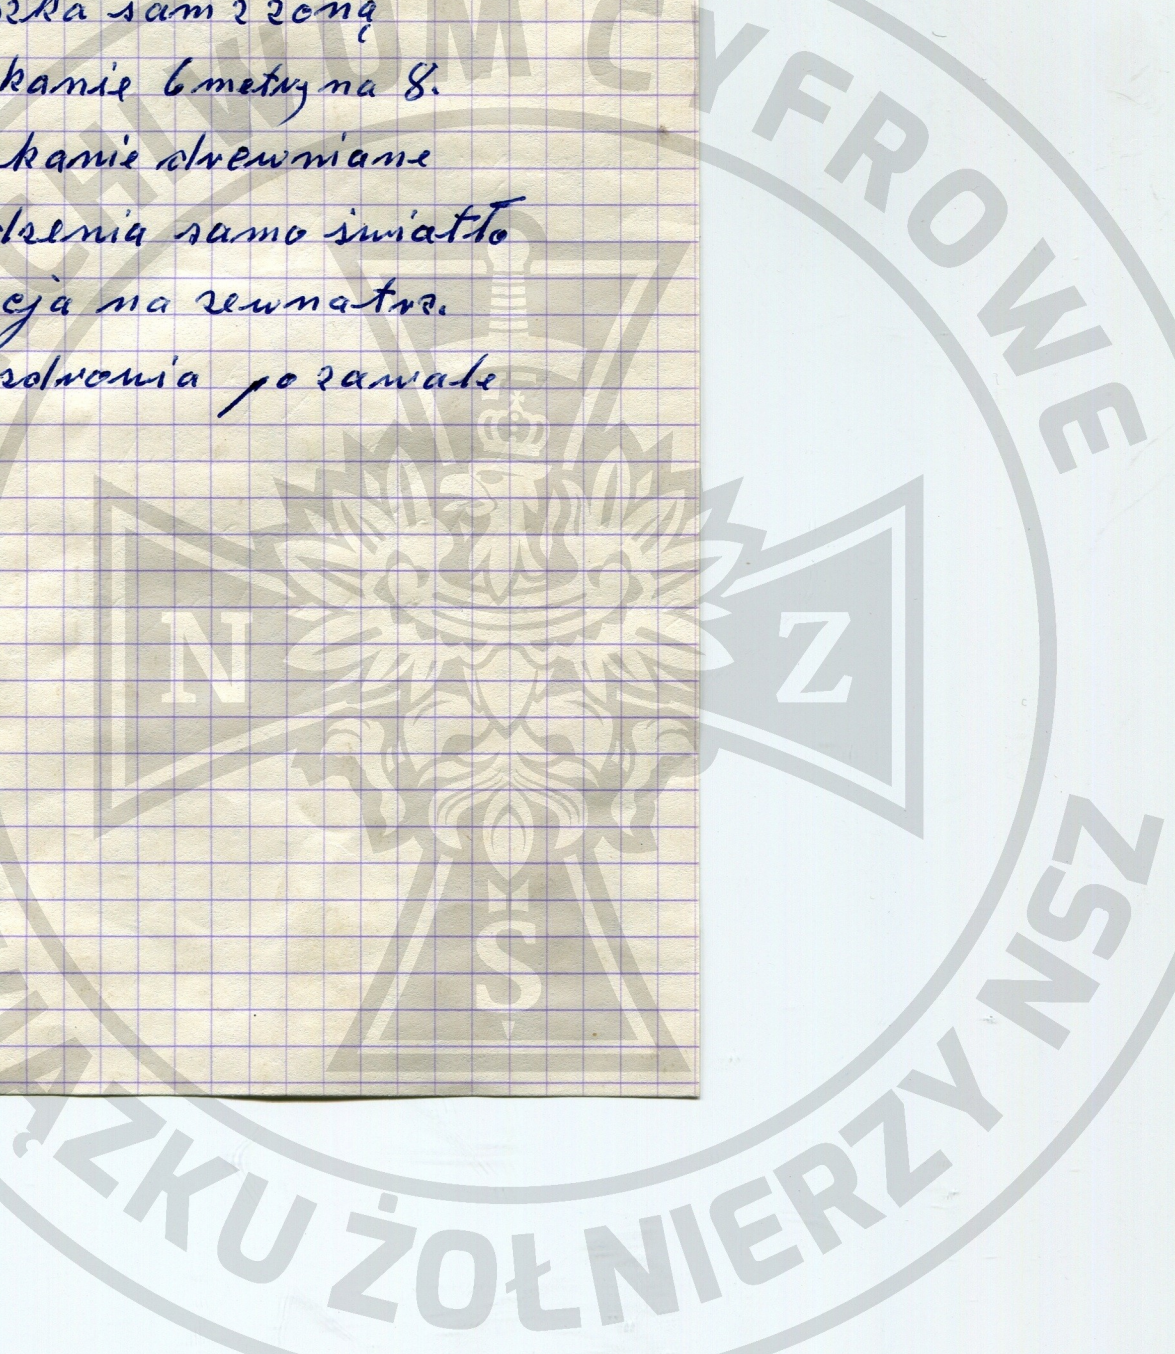 szka sam z żoną
kanie 6 metry na 8.
kanie drewniane
dzenia samo światło
cja na zewnatrz.
zdrowia po zawale
CHIWUM CYFROWE
N Z
S
IĄZKU ŻOŁNIERZY NSZ